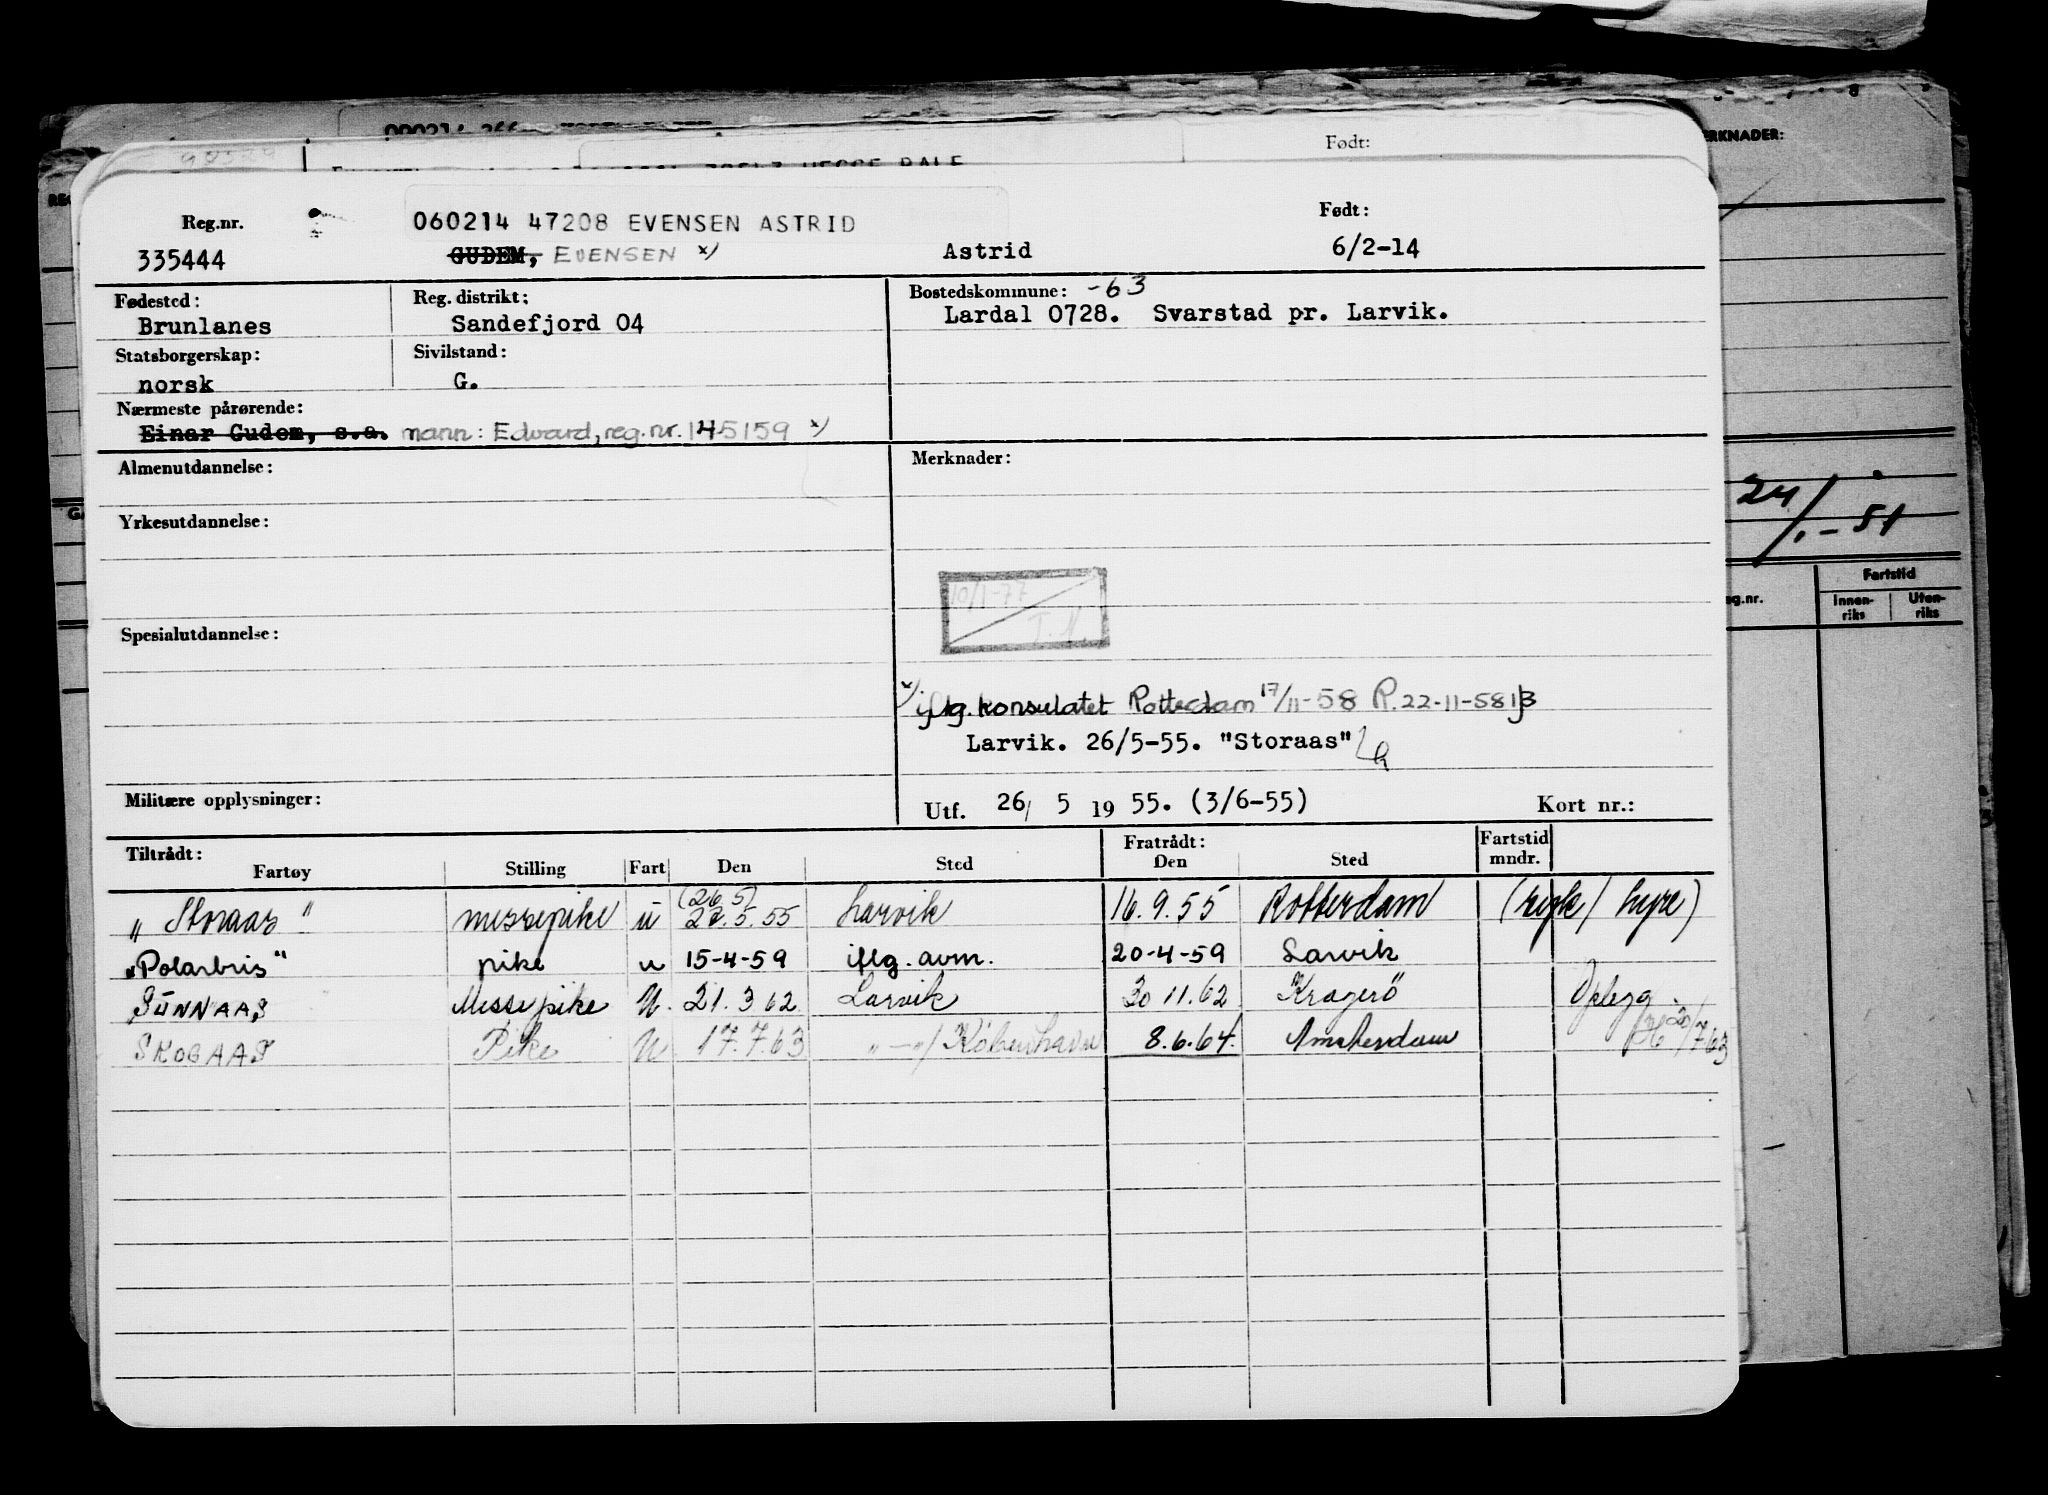 Født:
Reg.nr.
060214 47208 EVENSEN ASTRID
Født:
335444
GUDEM, EVENSEN x)
Astrid
6/2-14
Fødested:
Reg. distrikt:
Bostedskommune: -63
Brunlanes
Sandefjord 04
Lardal 0728. Svarstad pr. Larvik.
Statsborgerskap:
Sivilstand:
norsk
G.
Nærmeste pårørende:
Einar Gudem, s.a. mann: Edvard, reg.nr. 145159 x)
Almenutdannelse:
Merknader:
Yrkesutdannelse:
10/1-77
Spesialutdannelse:
x) iflg. konsulatet Rotterdam 17/11-58 R. 22-11-58
Larvik. 26/5-55. "Storaas"
Militære opplysninger:
Utf. 26/ 5 19 55. (3/6-55)
Kort nr.:
Tiltrådt:
Fratrådt:
Fartstid mndr.
Fartøy Stilling Fart Den Sted Den Sted
(26.5)
"Storaas" messepike u 27.5.55 Larvik 16.9.55 Rotterdam (sijk / hyre)
"Polarbris" pike u 15-4-59 iflg. avm. 20-4-59 Larvik
SUNNAAS Messepike U. 21.3.62 Larvik 30 11.62 Kragerö Opplegg.
SKOGAAS Pike U 17.7.63 "-"/ København 8.6.64. Amsterdam 20/7 63
RKNADER:
24/1-51
Fartstid
Innen-riks
Uten-riks